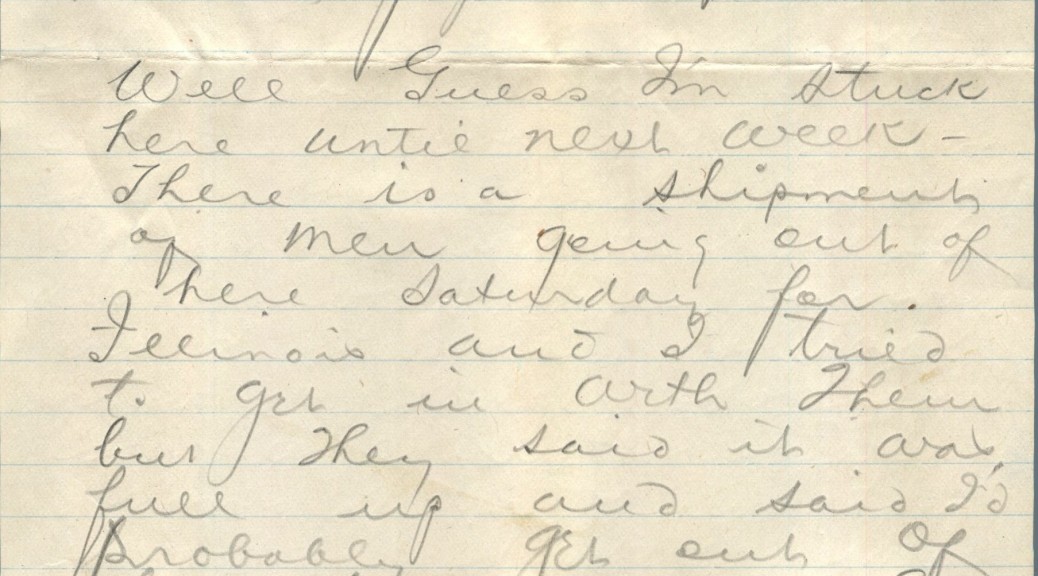 Well Guess I'm stuck
here until next week -
There is a shipment
of men going out of
here Saturday for
Illinois and I tried
to get in with them
but they said it was
full up and said I'd
probably get out of